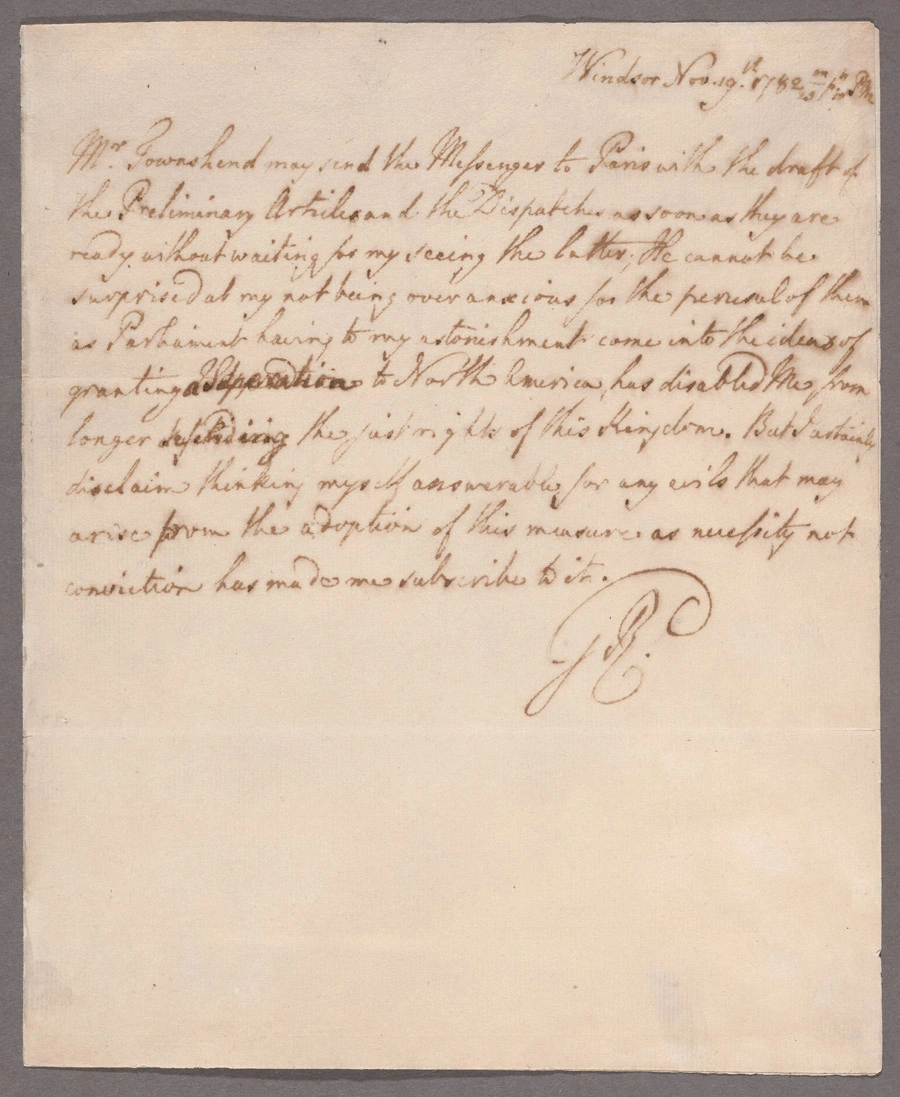 Windsor Nov. 19th. 1782 m/ pt PM
Mr. Townshend may send the Messenger to Paris with the draft of
the Preliminary Articles and the Dispatches as soon as they are
ready without waiting for my seeing the latter; He cannot be
surprised at my not being over anxious for the perusal of them
as Parliament having to my astonishment come into the ideas of
granting a Seperation to North America, has disabled Me from
longer defending the just rights of this Kingdom. But I certainly
disclaim thinking myself answerable for any evils that may
arise from the adoption of this measure as necessity not
conviction has made me subscribe to it.
GR.